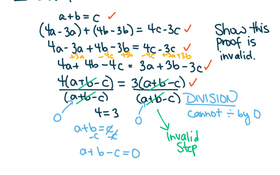 a+b=c ✓
(4a-3a)+(4b-3b)=4c-3c ✓
4a-3a+4b-3b=4c-3c ✓
4a+4b-4c=3a+3b-3c ✓
4(a+b-c) = 3(a+b-c) ✓
(a+b-c) (a+b-c)
0 4=3 0
a+b=c
-c -c
a+b-c=0
Show this
Proof is
invalid.
DIVISION
cannot ÷ by 0
Invalid
Step